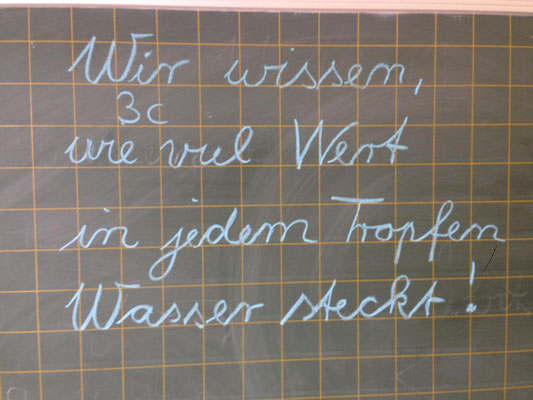 Wir wissen,
3c
wie viel Wert
in jedem Tropfen
Wasser steckt!